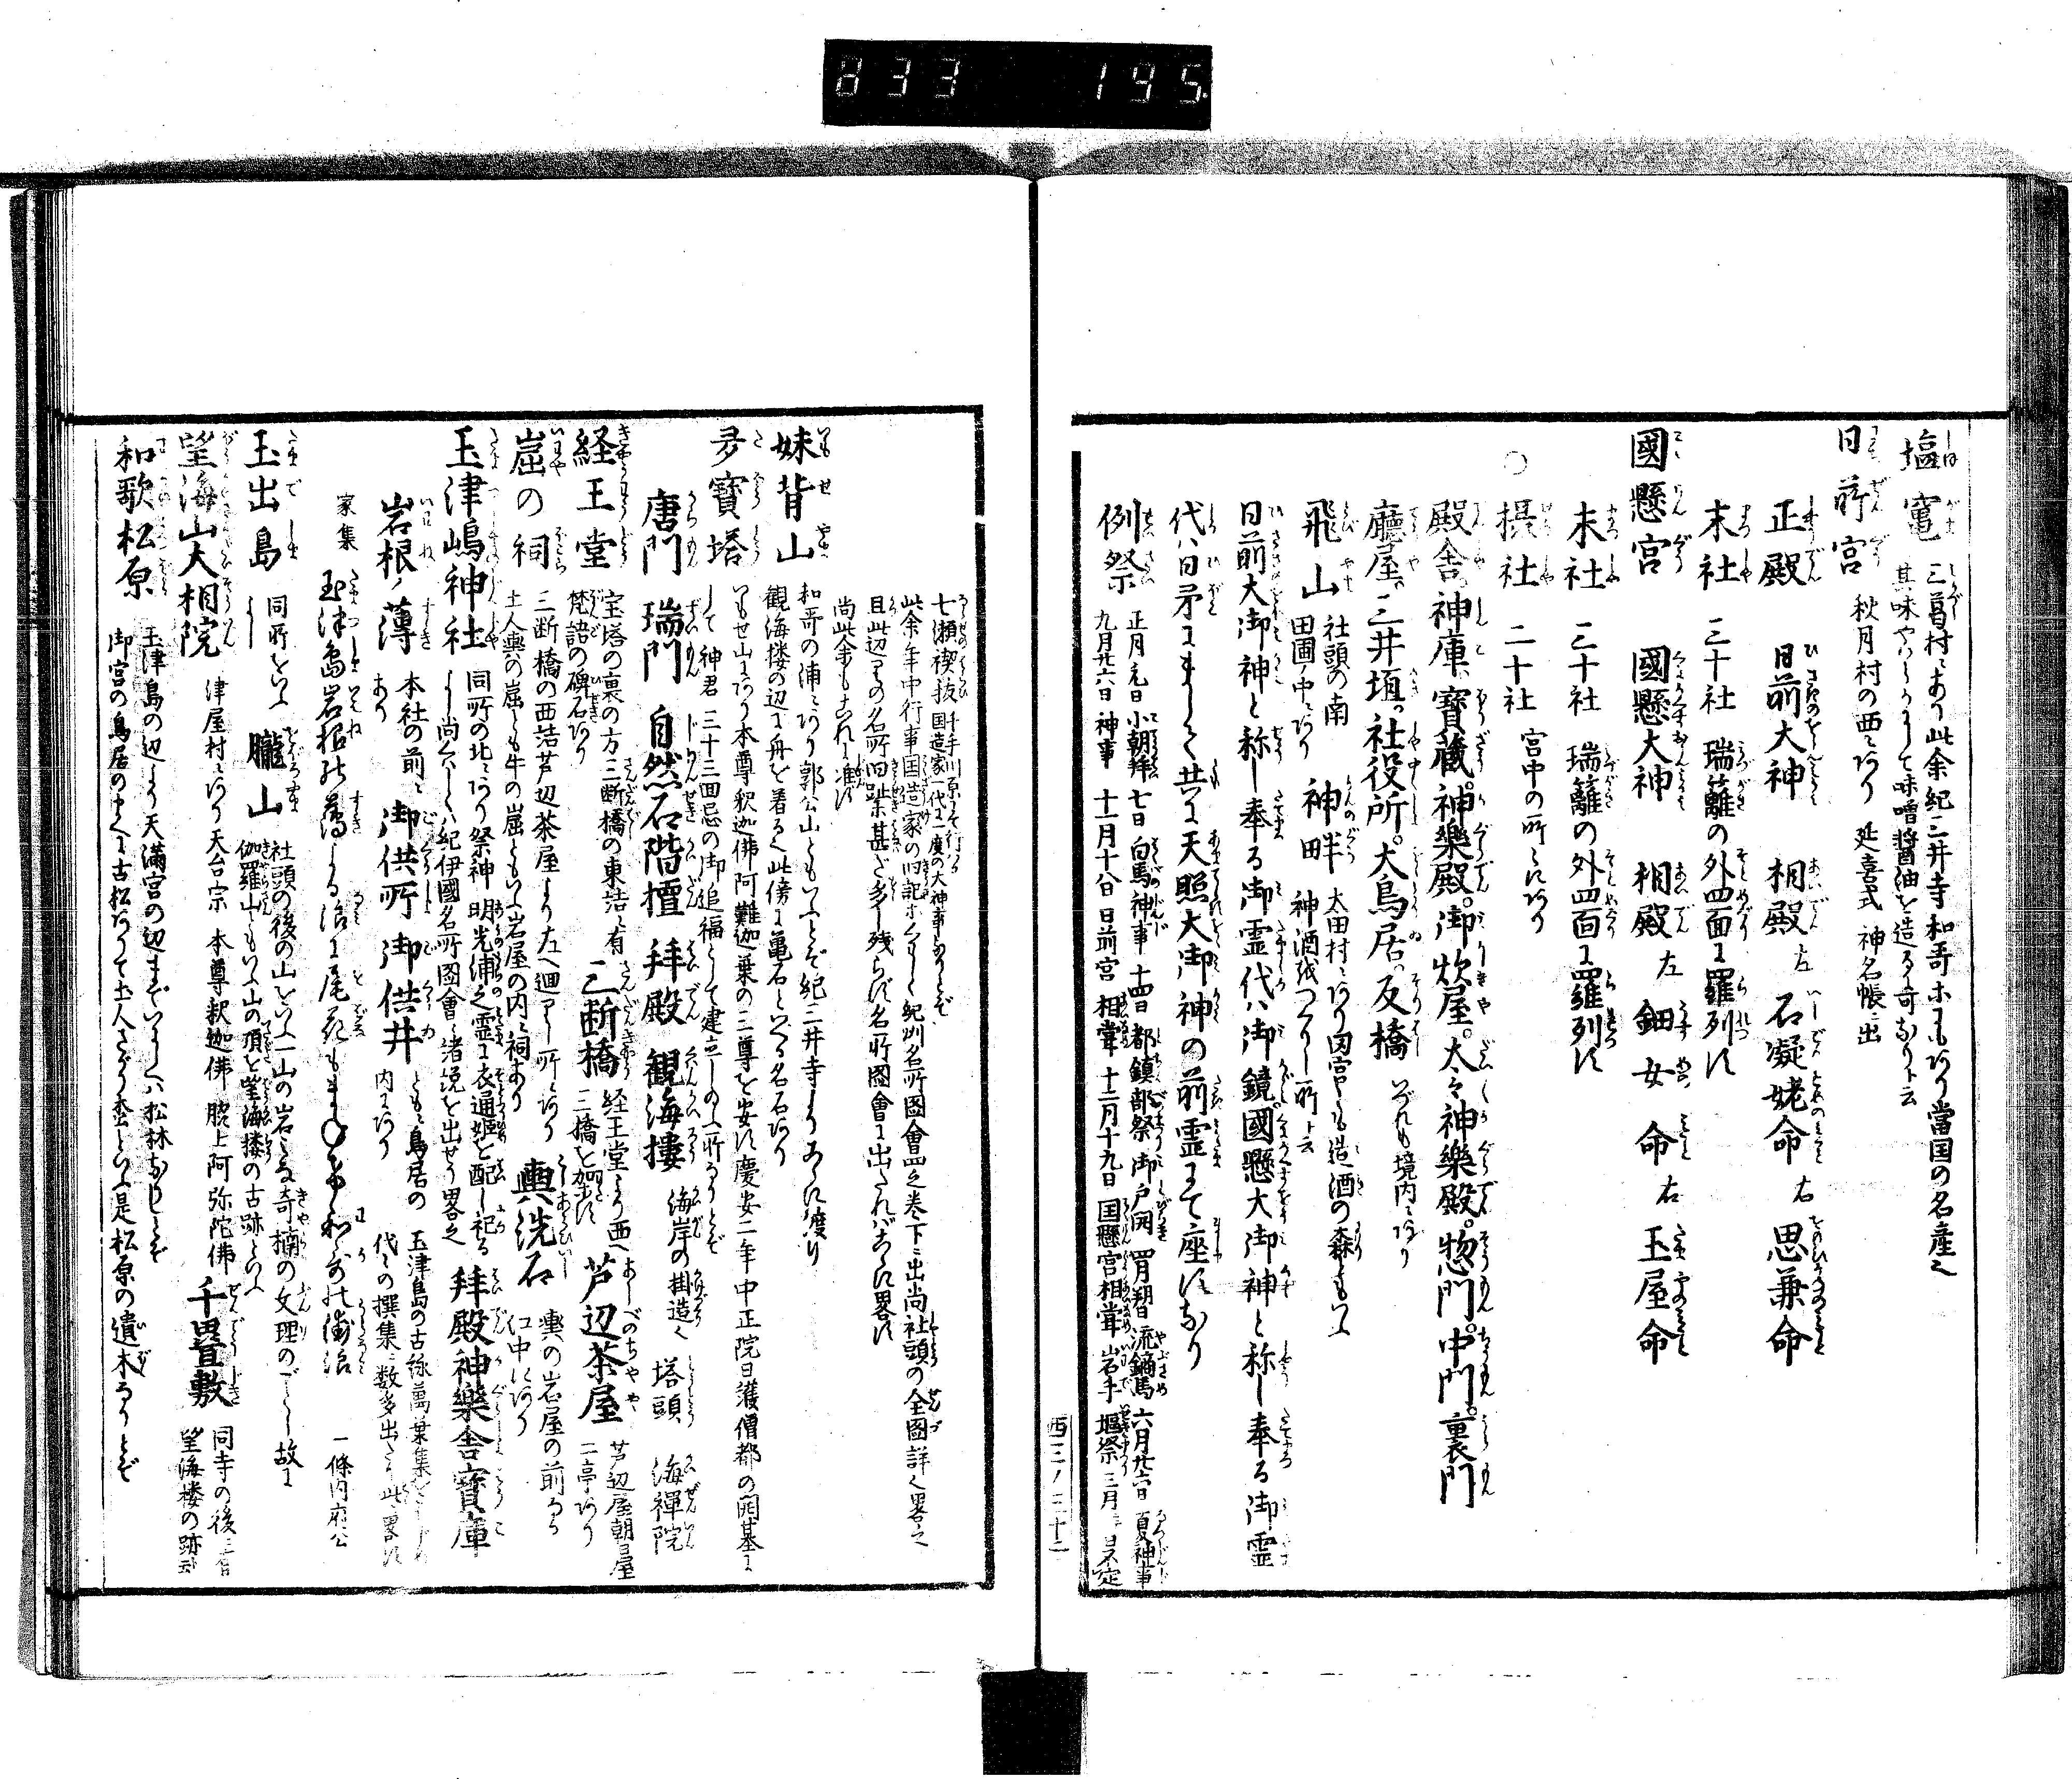 833 195
塩竃 三葛村にあり此余紀三井寺和哥ホにもあり當国の名産也
其味やはらかにして味噌醤油を造るに奇なりト云
日前宮 秋月村の西にあり 延喜式 神名帳ニ出
正殿 日前大神 相殿 左 石凝姥命 右 思兼命
末社 三十社 瑞籬の外四面に羅列す
國懸宮 國懸大神 相殿 左 鈿女命 右 玉屋命
末社 三十社 瑞籬の外四面に羅列す
○摂社 二十社 宮中の所々にあり
殿舎。神庫。寶蔵。神樂殿。御炊屋。太々神樂殿。惣門。中門。裏門
廳屋。三井垣。社役所。大鳥居。反橋 いづれも境内にあり
飛山 社頭の南田圃ノ中にあり 神畔 太田村にあり田宮とも造酒の森ともいふ神酒をつくりし所ト云
日前大御神と称し奉る御霊代ハ御鏡。國懸大御神と称し奉る御霊
代ハ日矛にまして共に天照大御神の前霊にて座すなり
例祭 正月元日 小朝拜 七日 白馬神事 十四日 都鎮部祭 御戸開 四月朔日 流鏑馬 六月廿六日 夏神事
九月廿六日 神事 十一月十八日 日前宮 相甞 十二月十九日 国懸宮相甞 岩手堰祭 三月ニ日不定
西三ノ三十二
七瀬禊抜 千手川原にて行る 国造家一代に一度の大神事なりとぞ
此余年中行事国造家の旧記ホくわしく紀州名所図會四之巻下ニ出尚社頭の全図詳く畧之
且此辺りの名所旧跡甚だ多し残らず名所図會に出たればこゝに畧す
尚此余もこれに准ず
妹背山 和哥の浦にあり郭公山ともいふとぞ紀三井寺よりこゝに渡り
観海楼の辺に舟を着るく此傍に亀石といへる名石あり
多寶塔 いもせ山にあり本尊釈迦佛阿難迦葉の三尊を安す慶安二年中正院日護僧都の開基に
して 神君 三十三回忌の御追福として建立しのふ所なりとぞ
唐門 瑞門 自然石階檀 拜殿 観海楼 海岸の掛造く 塔頭 海禅院
経王堂 宝塔の裏の方三断橋の東詰ニ有 梵語の碑石あり 三断橋 経王堂より西へ三橋を架す 芦辺茶屋 芦辺屋朝日屋二亭あり
嵓の祠 三断橋の西詰芦辺茶屋より左へ廻りし所にあり 土人輿の嵓とも牛の嵓ともいふ岩屋の内に祠あり 輿洗石 輿の岩屋の前なる江中にあり
玉津嶋神社 同所の北にあり祭神 明光浦之霊に衣通姫を配し祀る 拜殿神樂舎寶庫
し尚くハしくハ紀伊國名所図會に諸説を出せり畧之
岩根ノ薄 本社の前にあり 御供所 御供井 ともに鳥居の内にあり 玉津島の古詠萬葉集をはじめ代々の撰集に数多出たり此に畧す
家集 玉津島岩根の薄しる浪に尾花もまねく和哥の浦浪 一條内府公
玉出島 同所をいふ 朧山 社頭の後の山をいふ一山の岩ミな奇楠の文理のごとし故に
伽羅山ともいふ山の頂を望海楼の古跡といふ
望海山大相院 津屋村にあり天台宗 本尊釈迦佛 脇上阿弥陀佛 千畳敷 同寺の後ニ有望海楼の跡云
和歌松原 玉津島の辺より天満宮の辺までいにしへハ松林なりしとぞ
御宮の鳥居の中くに古松ありて土人さがり松といふ是松原の遺木なりとぞ